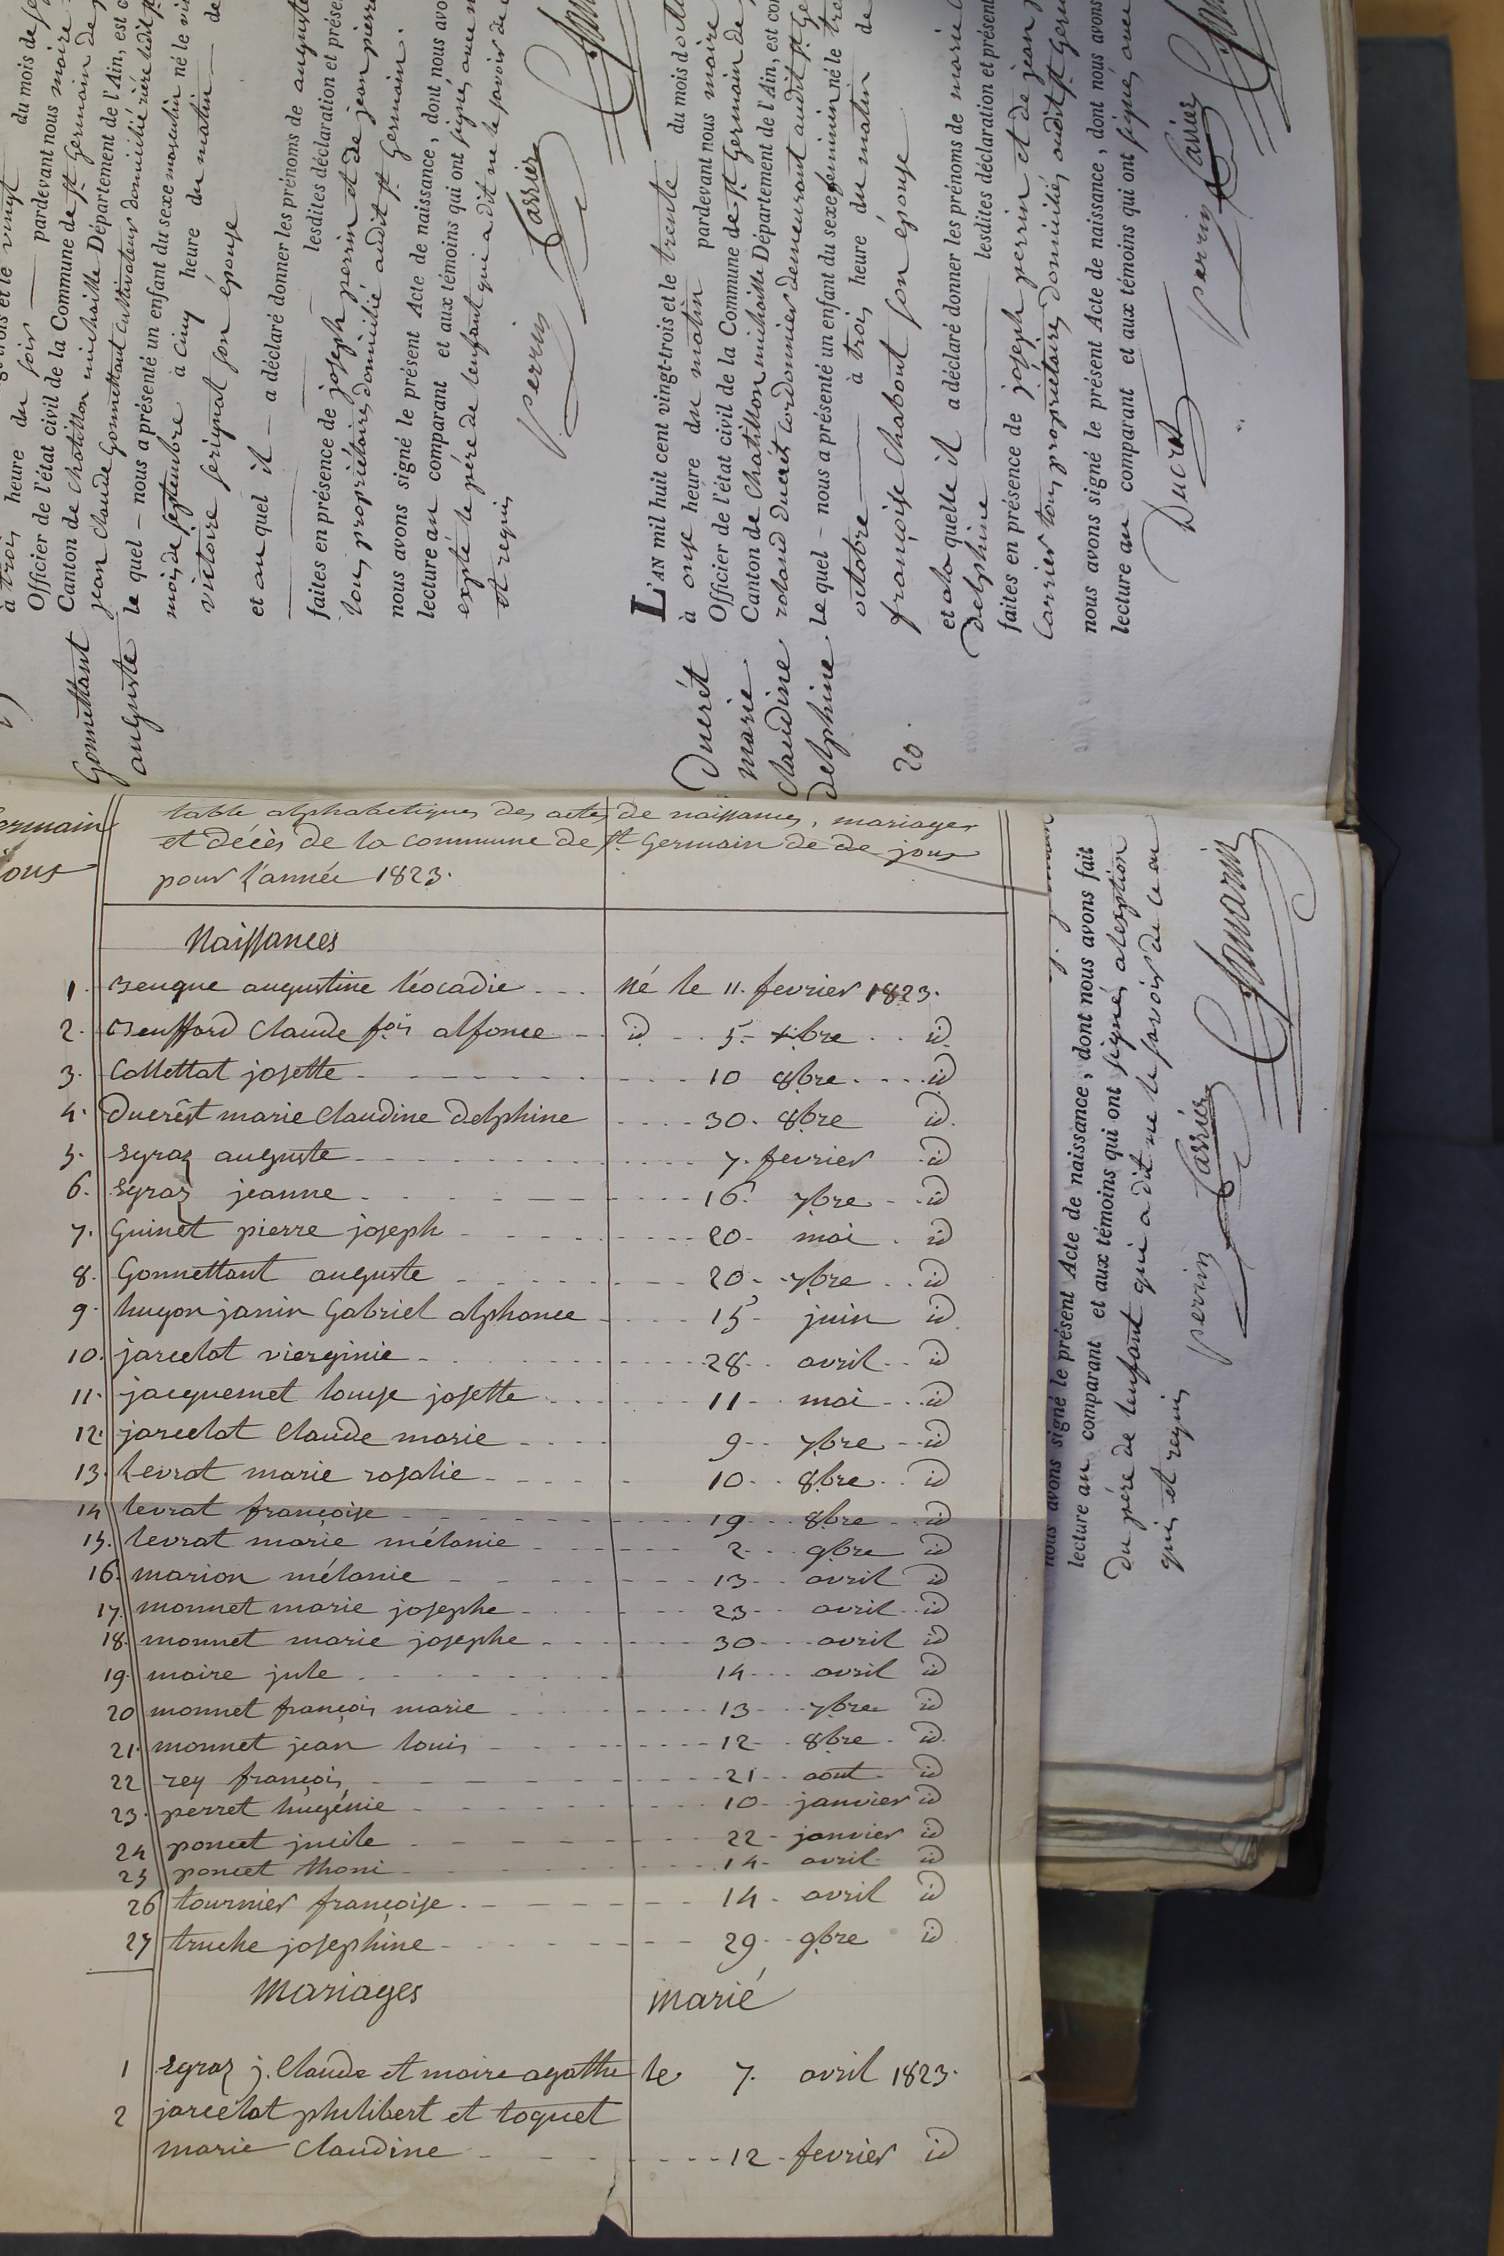 du mois de
à trois heure du soir pardevant nous maire
Officier de l'état civil de la Commune de St Germain de
Canton de Chatillon michaille Département de l'Ain, est
jean Claude Gonnettant cultivateur domicilié
le quel – nous a présenté un enfant du sexe masculin né le
mois de septembre à cinq heure du matin de
victoire serignat son épouse
et au quel il – a déclaré donner les prénoms de auguste
lesdites déclaration et
faites en présence de joseph perrin et de jean pierre
tous propriétaires domicilié audit St Germain.
nous avons signé le présent Acte de naissance, dont nous
lecture au comparant et aux témoins qui ont signés avec
expté le père de lenfant qui a dit ne le savoir de
et requis
perrin Carrier
Gonnettant
auguste
L'AN mil huit cent vingt-trois et le trente du mois
à onze heure du matin pardevant nous maire
Officier de l'état civil de la Commune de St Germain de
Canton de Chatillon michaille Département de l'Ain, est
roland Ducrêt cordonnier demeurant audit St
le quel – nous a présenté un enfant du sexe feminin né le
octobre à trois heure du matin de
françoise Chabout son épouse
et a la quelle il a déclaré donner les prénoms de marie
Delphine lesdites déclaration et
faites en présence de joseph perrin et de jean
Carrier tous propriétaires domiciliés audit St
nous avons signé le présent Acte de naissance, dont nous avons
lecture au comparant et aux témoins qui ont signés avec
Ducrêt perrin Carrier
Ducrêt
marie
claudine
delphine
20.
table alphabetiques des actes de naissances, mariages
et décès de la commune de St Germain de de joux
pour l'année 1823.
Naissances
1. Beuque augustine léocadie né le 11. fevrier 1823.
2. Beuffard Claude fois alfonce id 5. xbre id
3. Collettat josette 10 8bre id
4. Ducrêt marie Claudine Delphine 30. 8bre id.
5. Egraz auguste 7. fevrier id
6. Egraz jeanne 16. 7bre id
7. Guinet pierre joseph 20. mai id
8. Gonnettant auguste 20. 7bre id
9. hugon janin Gabriel alphonce 15 juin id
10. jarcelot vierginie 28 avril id
11. jacquemet louise josette 11 mai id
12. jarcelot Claude marie 9 7bre id
13. Levrat marie rosalie 10 8bre id
14 levrat françoise 19 8bre id
15. levrat marie mélanie 2 9bre id
16. marion mélanie 13 avril id
17. monnet marie josephe 23 avril id
18. monnet marie josephe 30 avril id
19. maire jule 14 avril id
20 monnet françois marie 13 7bre id
21. monnet jean louis 12 8bre id
22 rey françois 21 aout id
23. perret hugénie 10 janvier id
24 poncet jucile 22 janvier id
25 poncet thoni 14 avril id
26 tournier françoise 14 avril id
27 truche josephine 29 9bre id
Mariages marié
1 Egraz j. Claude et maire agathe le 7. avril 1823.
2 jarcelot philibert et toquet
marie Claudine 12 fevrier id
nous avons signé le présent Acte de naissance, dont nous avons fait
lecture au comparant et aux témoins qui ont signés alexption
du père de lenfant qui a dit ne le savoir de ce en
quis et requis
perrin Carrier